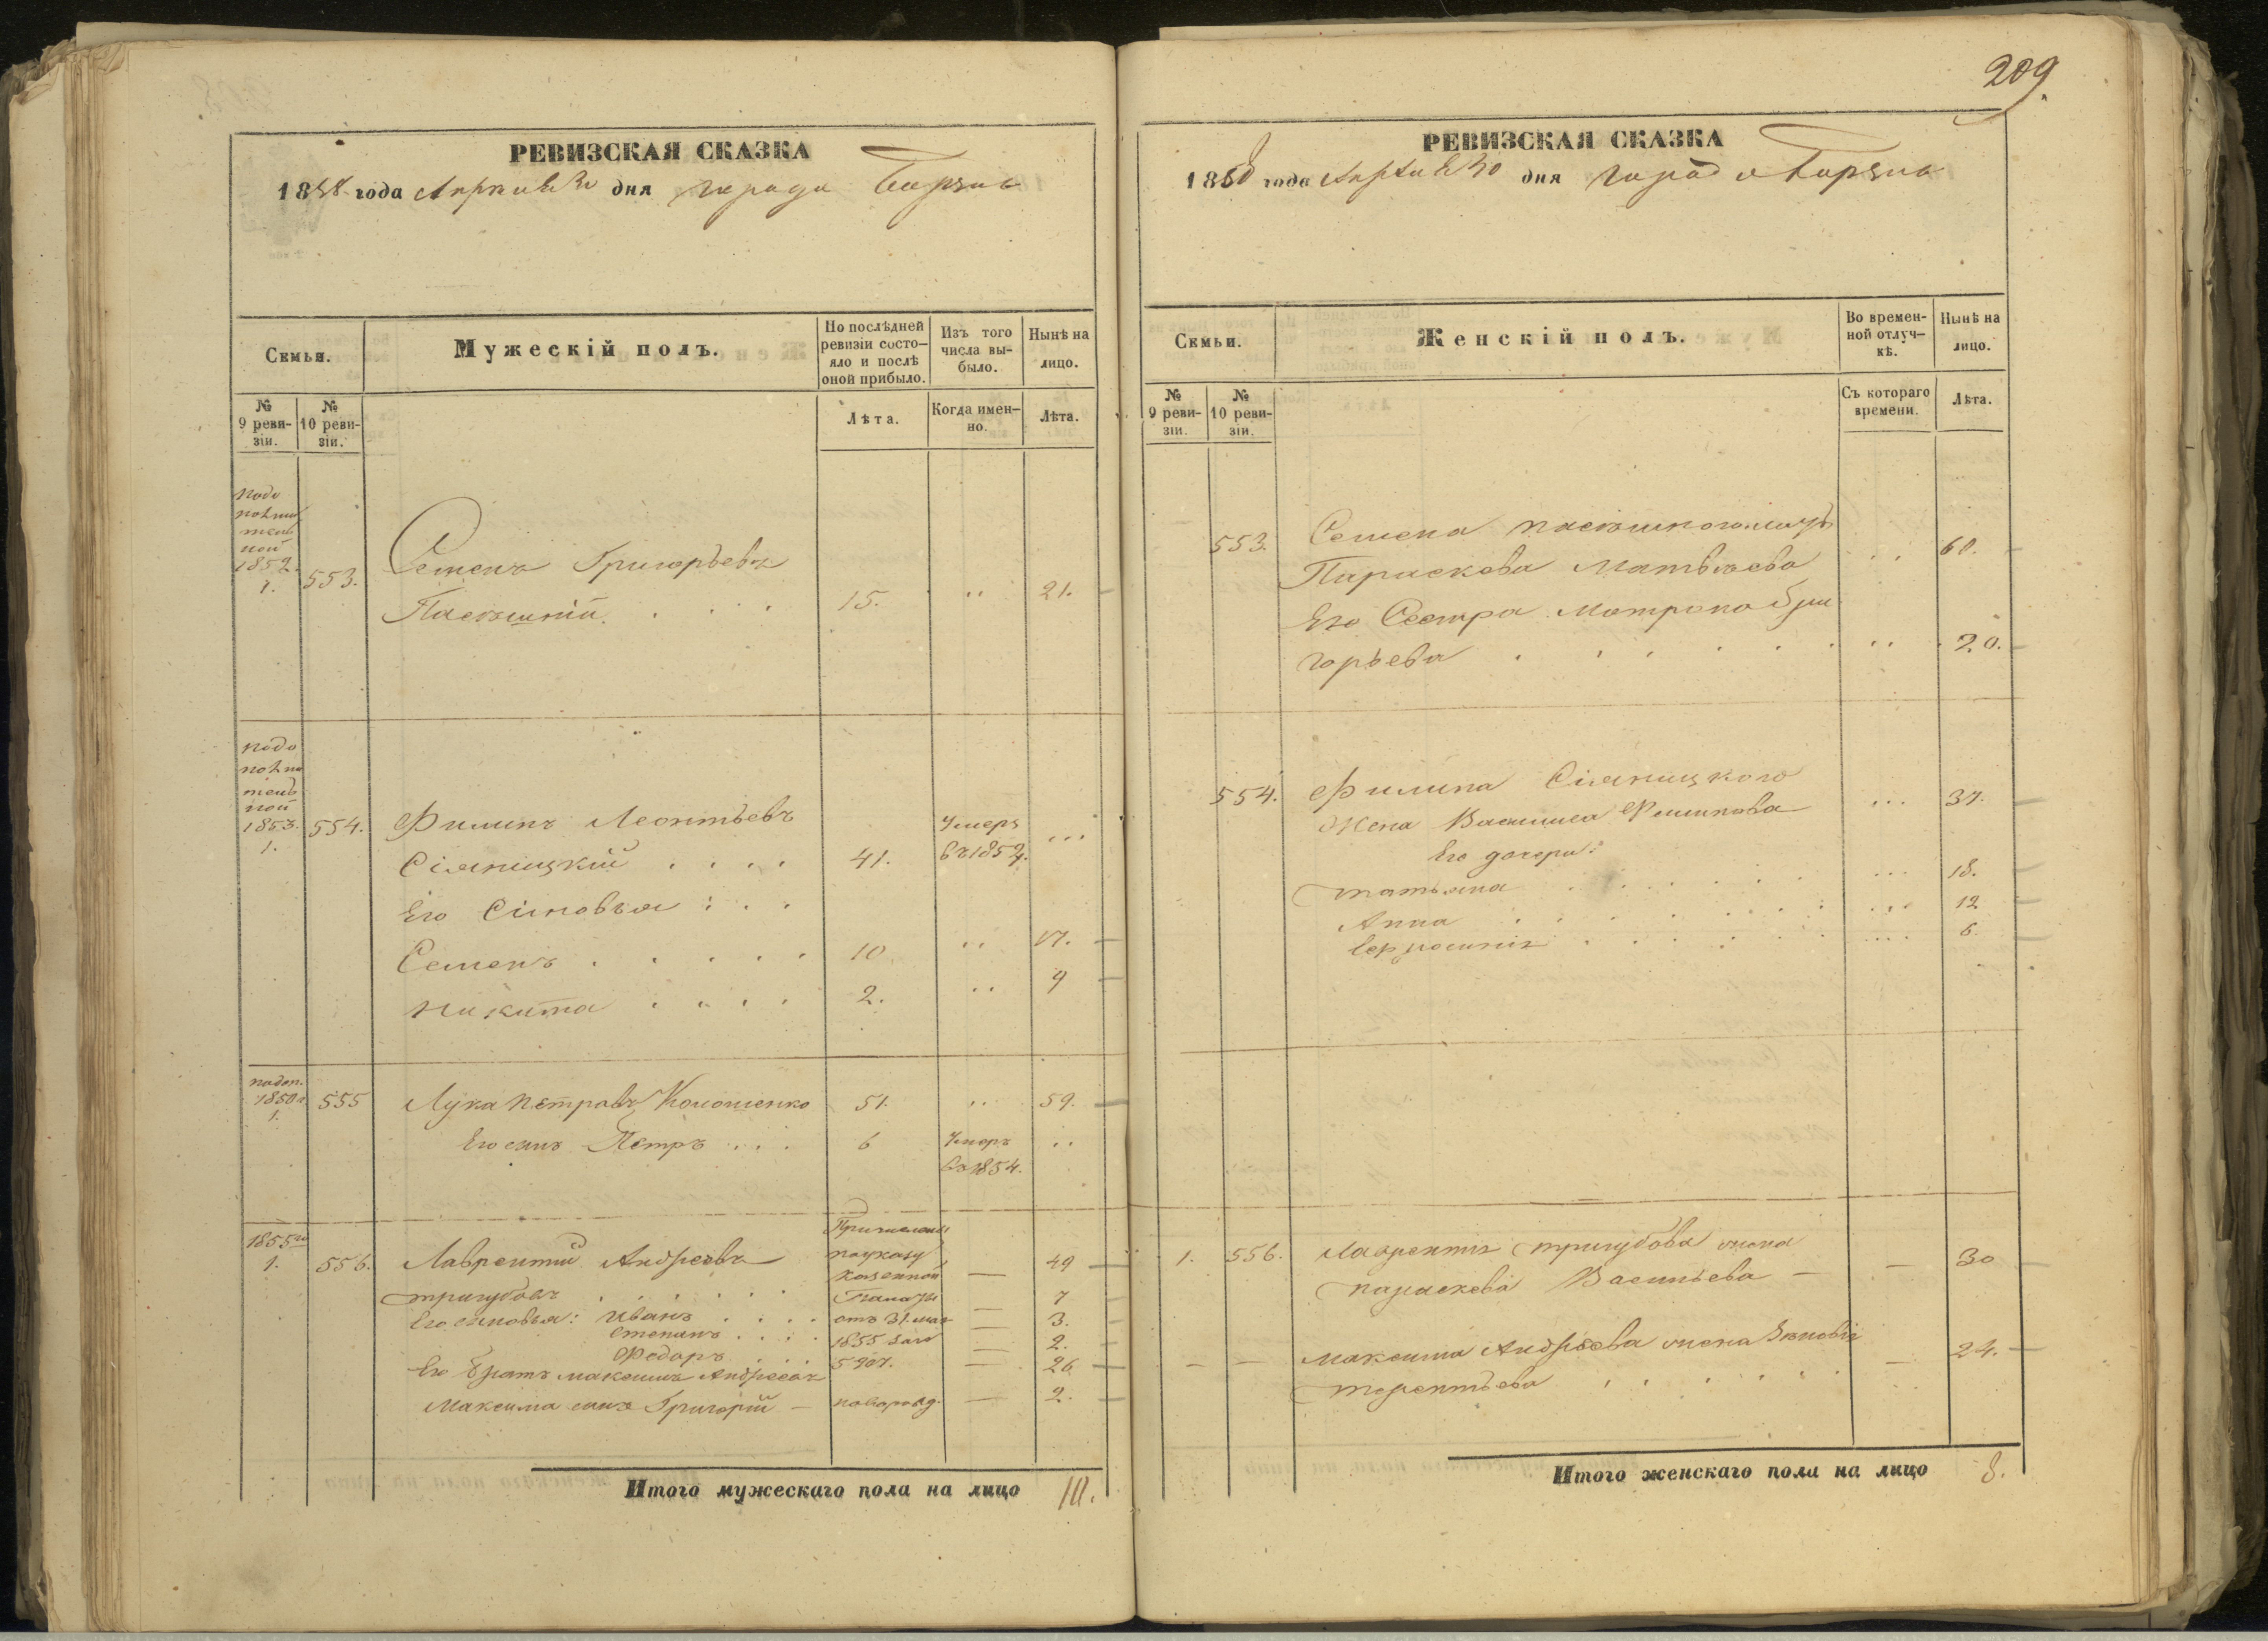 РЕВИЗСКАЯ СКАЗКА
1858 года Апреля 30 дня города Борзна
Семья.
Мужескій полъ.
По послѣдней ревизіи состо-
яло и послѣ
оной прибыло.
Изъ того
числа вы-
было.
Нынѣ на
лицо.
№
9 реви-
зіи.
№
10 реви-
зіи.
Лѣта.
Когда имен-
но.
Лѣта.
1852.
1.
553.
Семенъ Григорьевъ
15.
21.
1853.
1.
554.
Филипъ Леонтьевъ
Сіяницкій
41.
Умеръ
въ 1857.
Его Сіновья:
Семенъ
10
17.
Никита
2.
9
1850
1.
555
Лука Петровъ
51.
59.
Его сынъ Петръ
6
Умеръ
въ 1854.
1855го
1.
556.
Лаврентій Андреевъ
Тригубовъ
49
Причислены
по указу
Казенной
Палаты
отъ 31. мая
1855 за №
5907.
Его сыновья: Иванъ
7
Степанъ
3.
Федоръ
2.
Его братъ Максимъ Андреевъ
26
Максима сынъ Григорій
2.
Итого мужескаго пола на лицо 10.
209.
РЕВИЗСКАЯ СКАЗКА
1858 года Апреля 30 дня города Борзна
Семьи.
Женскій полъ.
Во времен-
ной отлуч-
кѣ.
Нынѣ на
лицо.
№
9 реви-
зіи.
№
10 реви-
зіи.
Съ котораго
времени.
Лѣта.
553.
Семена
Параскева Матвѣева
60.
Его Сестра Матрона Гри
горьева
20.
554.
Филипа Сіяницкого
жена Василиса Филипова
37.
Его дочери:
Татьяна
18.
Анна
12
6.
1.
556.
Лаврентія Тригубова жена
Параскева Васильева
30
Максима Андреева жена Зѣновія
Терентьева
24.
Итого женскаго пола на лицо 8.